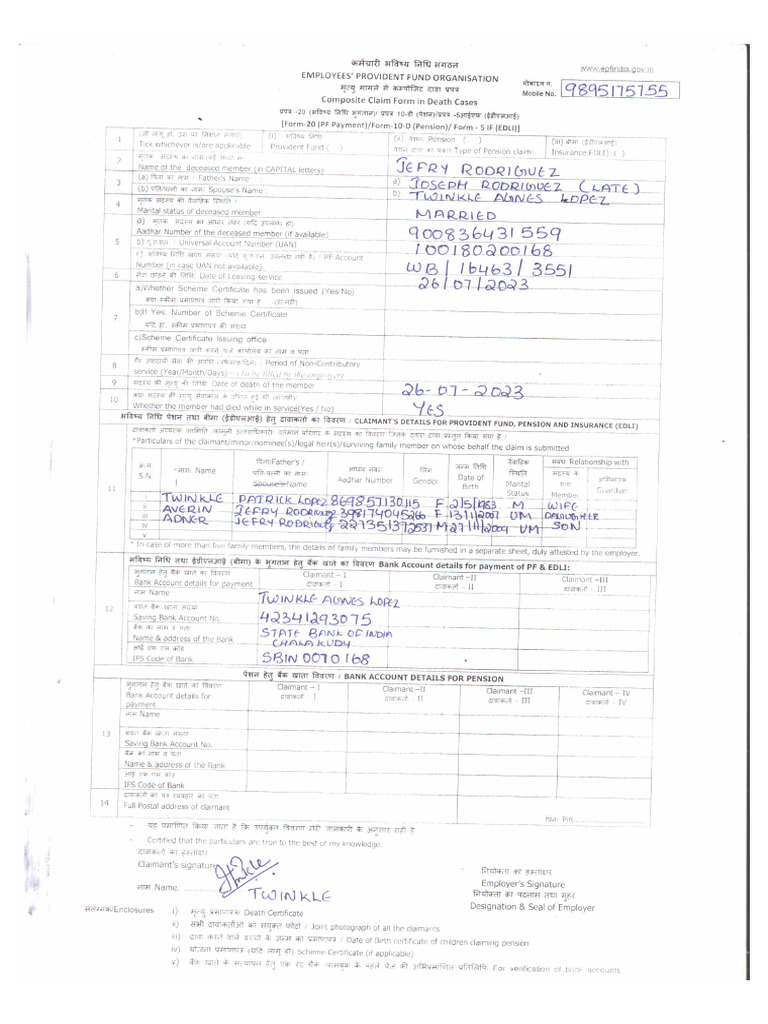 कर्मचारी भविष्य निधि संगठन
www.epfindia.gov.in
EMPLOYEES' PROVIDENT FUND ORGANISATION
मृत्यु मामले में कम्पोजिट दावा प्रपत्र
मोबाइल न.
Mobile No. 9895175755
Composite Claim Form in Death Cases
प्रपत्र -20 (भविष्य निधि भुगतान)/प्रपत्र 10-डी (पेंशन)/प्रपत्र -5आईएफ (ईडीएलआई)
[Form-20 (PF Payment)/Form-10-D (Pension)/ Form - 5 IF (EDLI)]
1 (जो लागू हो, उस पर निशान लगायें) (i) भविष्य निधि (ii) पेंशन/ Pension ( ) (iii) बीमा (ईडीएलआई)
Tick whichever is/are applicable Provident Fund ( ) पेंशन दावा का प्रकार/Type of Pension claim: Insurance EDLI) ( )
2 मृतक सदस्य का नाम
Name of the deceased member (in CAPITAL letters) JEFRY RODRIGUEZ
3 (a) पिता का नाम / Father's Name : a) JOSEPH RODRIGUEZ (LATE)
(b) पति/पत्नी का नाम/ Spouse's Name : b) TWINKLE AGNES LOPEZ
4 मृतक सदस्य की वैवाहिक स्थिति :
Marital status of deceased member MARRIED
5 a) मृतक सदस्य का आधार नंबर (यदि उपलब्ध हो)
Aadhar Number of the deceased member (if available) 900836431559
b) यू.ए.एन. : Universal Account Number (UAN) 100180200168
c) भविष्य निधि खाता संख्या (यदि यू.ए.एन. उपलब्ध नहीं है) : PF Account
Number (in case UAN not available) WB/16463/3551
6 सेवा छोड़ने की तिथि: Date of Leaving service 26/07/2023
7 a)Whether Scheme Certificate has been issued (Yes/No)
क्या स्कीम प्रमाणपत्र जारी किया गया है (हां/नहीं)
b)If Yes, Number of Scheme Certificate
यदि हां, स्कीम प्रमाणपत्र की संख्या
c)Scheme Certificate issuing office
स्कीम प्रमाणपत्र जारी करने वाले कार्यालय का नाम व पता
8 गैर अंशदायी सेवा की अवधि (वर्ष/माह/दिन) : Period of Non-Contributory
service (Year/Month/Days) - (To be filled by the employer)
9 सदस्य की मृत्यु की तिथि: Date of death of the member 26-07-2023
10 क्या सदस्य की मृत्यु सेवाकाल के दौरान हुई थी (हां/नहीं)
Whether the member had died while in service(Yes / No) YES
भविष्य निधि पेंशन तथा बीमा (ईडीएलआई) हेतु दावाकर्ता का विवरण / CLAIMANT'S DETAILS FOR PROVIDENT FUND, PENSION AND INSURANCE (EDLI)
*Particulars of the claimant/minor/nominee(s)/legal heir(s)/surviving family member on whose behalf the claim is submitted
11 क्र.सं. S.N. नाम/ Name पिता/Father's / पति-पत्नी का नाम/ Spouse's Name आधार नंबर/ Aadhar Number लिंग Gender जन्म तिथि Date of Birth वैवाहिक स्थिति Marital Status संबंध Relationship with सदस्य के Member अभिभावक Guardian
i TWINKLE PATRICK LOPEZ 869857130115 F 2/5/1983 M WIFE
ii AVERIN JEFRY RODRIGUEZ 398174045266 F 13/11/2007 UM DAUGHTER
iii ADNER JEFRY RODRIGUEZ 227351372537 M 27/11/2009 UM SON
iv
v
* In case of more than five family members, the details of family members may be furnished in a separate sheet, duly attested by the employer.
भविष्य निधि तथा ईडीएलआई (बीमा) के भुगतान हेतु बैंक खाते का विवरण Bank Account details for payment of PF & EDLI:
12 भुगतान हेतु बैंक खाते का विवरण Claimant – I Claimant –II Claimant –III
Bank Account details for payment दावाकर्ता - I दावाकर्ता - II दावाकर्ता - III
नाम Name TWINKLE AGNES LOPEZ
बचत बैंक खाता संख्या
Saving Bank Account No. 42341293075
बैंक का नाम व पता STATE BANK OF INDIA
Name & address of the Bank CHALAKUDY
आई एफ एस कोड
IFS Code of Bank SBIN 0070168
पेंशन हेतु बैंक खाता विवरण / BANK ACCOUNT DETAILS FOR PENSION
13 भुगतान हेतु बैंक खाते का विवरण Claimant – I Claimant –II Claimant –III Claimant – IV
Bank Account details for दावाकर्ता - I दावाकर्ता - II दावाकर्ता - III दावाकर्ता - IV
payment
नाम Name
बचत बैंक खाता संख्या
Saving Bank Account No.
बैंक का नाम व पता
Name & address of the Bank
आई एफ एस कोड
IFS Code of Bank
14 दावाकर्ता का पत्र व्यवहार का पता
Full Postal address of claimant
पिन: Pin.....
- यह प्रमाणित किया जाता है कि उपर्युक्त विवरण मेरी जानकारी के अनुसार सही है
- Certified that the particulars are true to the best of my knowledge.
दावाकर्ता का हस्ताक्षर
Claimant's signature Twinkle
नियोक्ता का हस्ताक्षर
Employer's Signature
नाम Name: TWINKLE
नियोक्ता का पदनाम तथा मुहर
Designation & Seal of Employer
संलग्नक/Enclosures i) मृत्यु प्रमाणपत्र/ Death Certificate
ii) सभी दावाकर्ताओं का संयुक्त फोटो / Joint photograph of all the claimants
iii) दावा करने वाले बच्चों के जन्म का प्रमाणपत्र / Date of Birth certificate of children claiming pension
iv) योजना प्रमाणपत्र (यदि लागू हो) Scheme Certificate (if applicable)
v) बैंक खाते के सत्यापन हेतु एक रद्द चैक /पासबुक के पहले पेज की अभिप्रमाणित प्रतिलिपि: For verification of bank accounts.